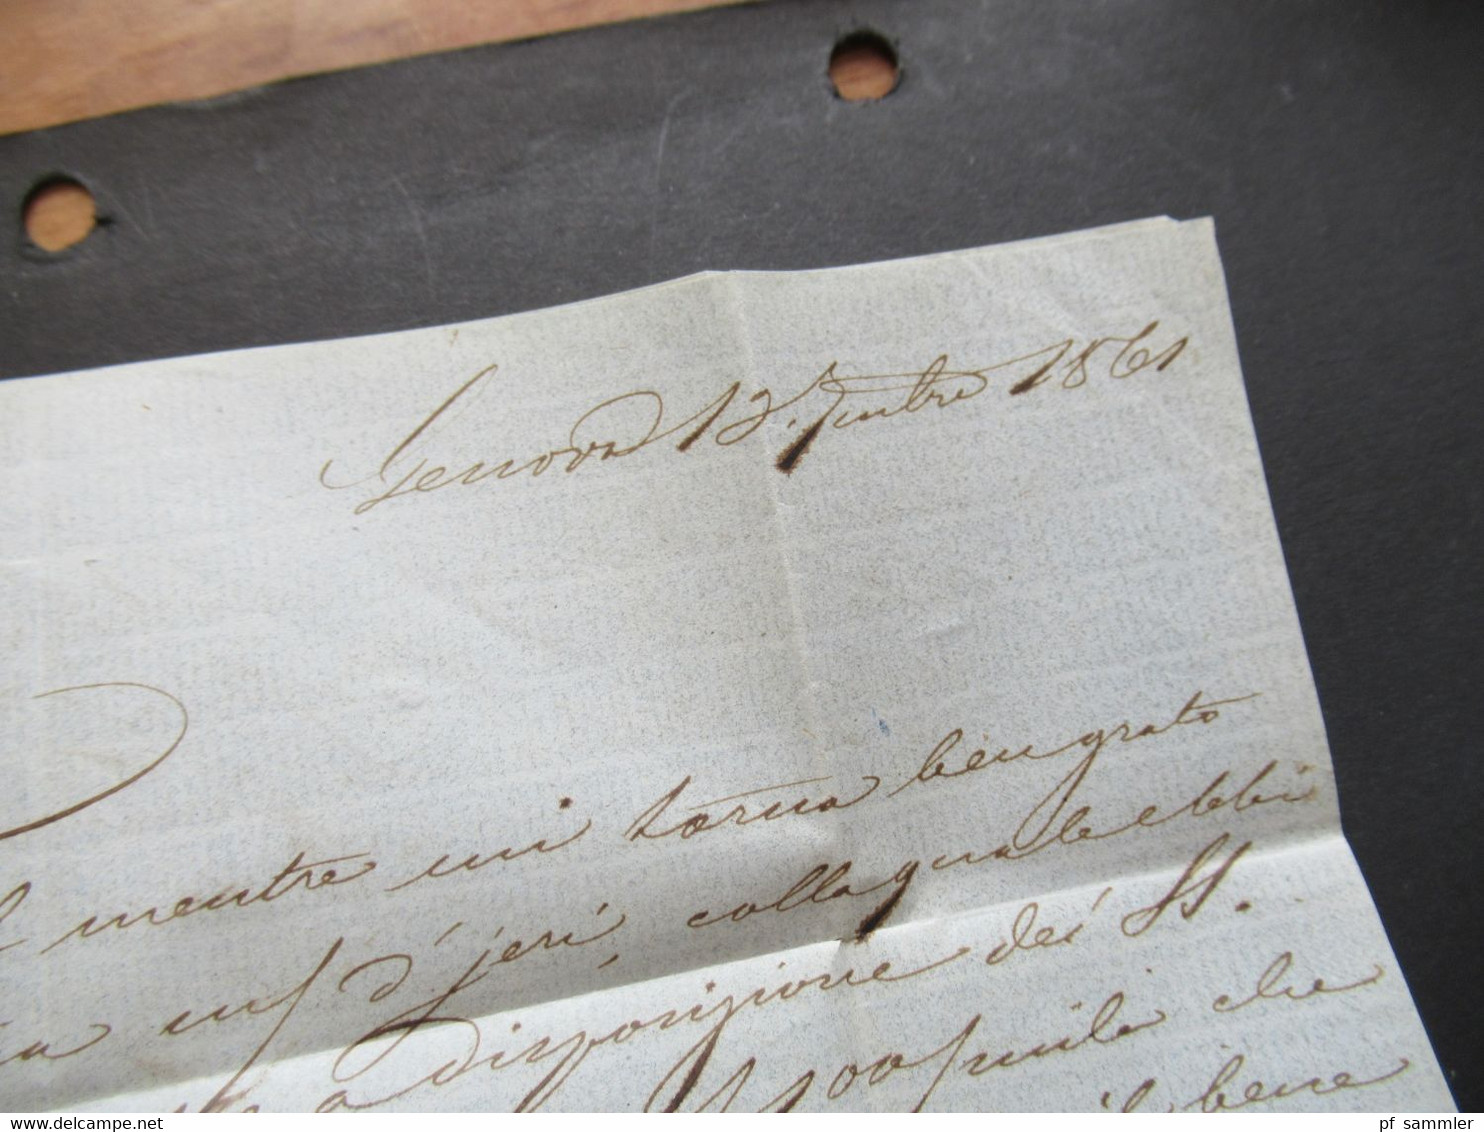 Genova 12. 7mbre 1861
mentre mi torna ben grato
mia d'jeri, colla quale ebbi
a disposizione dei SS.
1500 fucili che
il bene
www.delcampe.net
pf_sammler